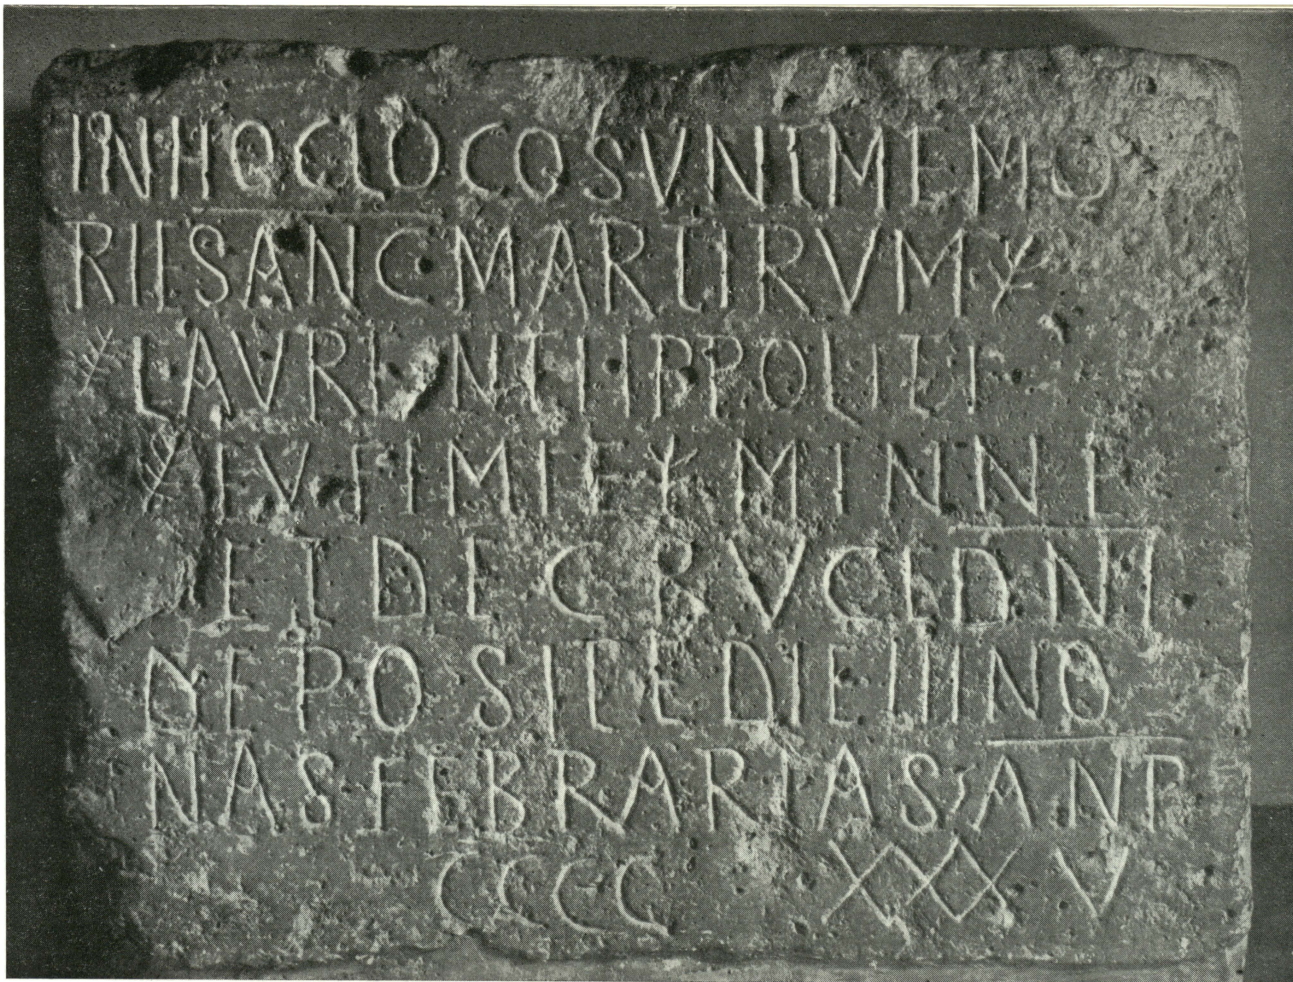 IN HOC LOCO SVNT MEMO
RIE SANC MARTIRVM
LAVRENTI IPPOLITI
EVFIMIE MINNE
ET DE CRVCE DNI
DEPOSITE DIE III NO
NAS FEBRARIAS ANP
CCCC XXXV